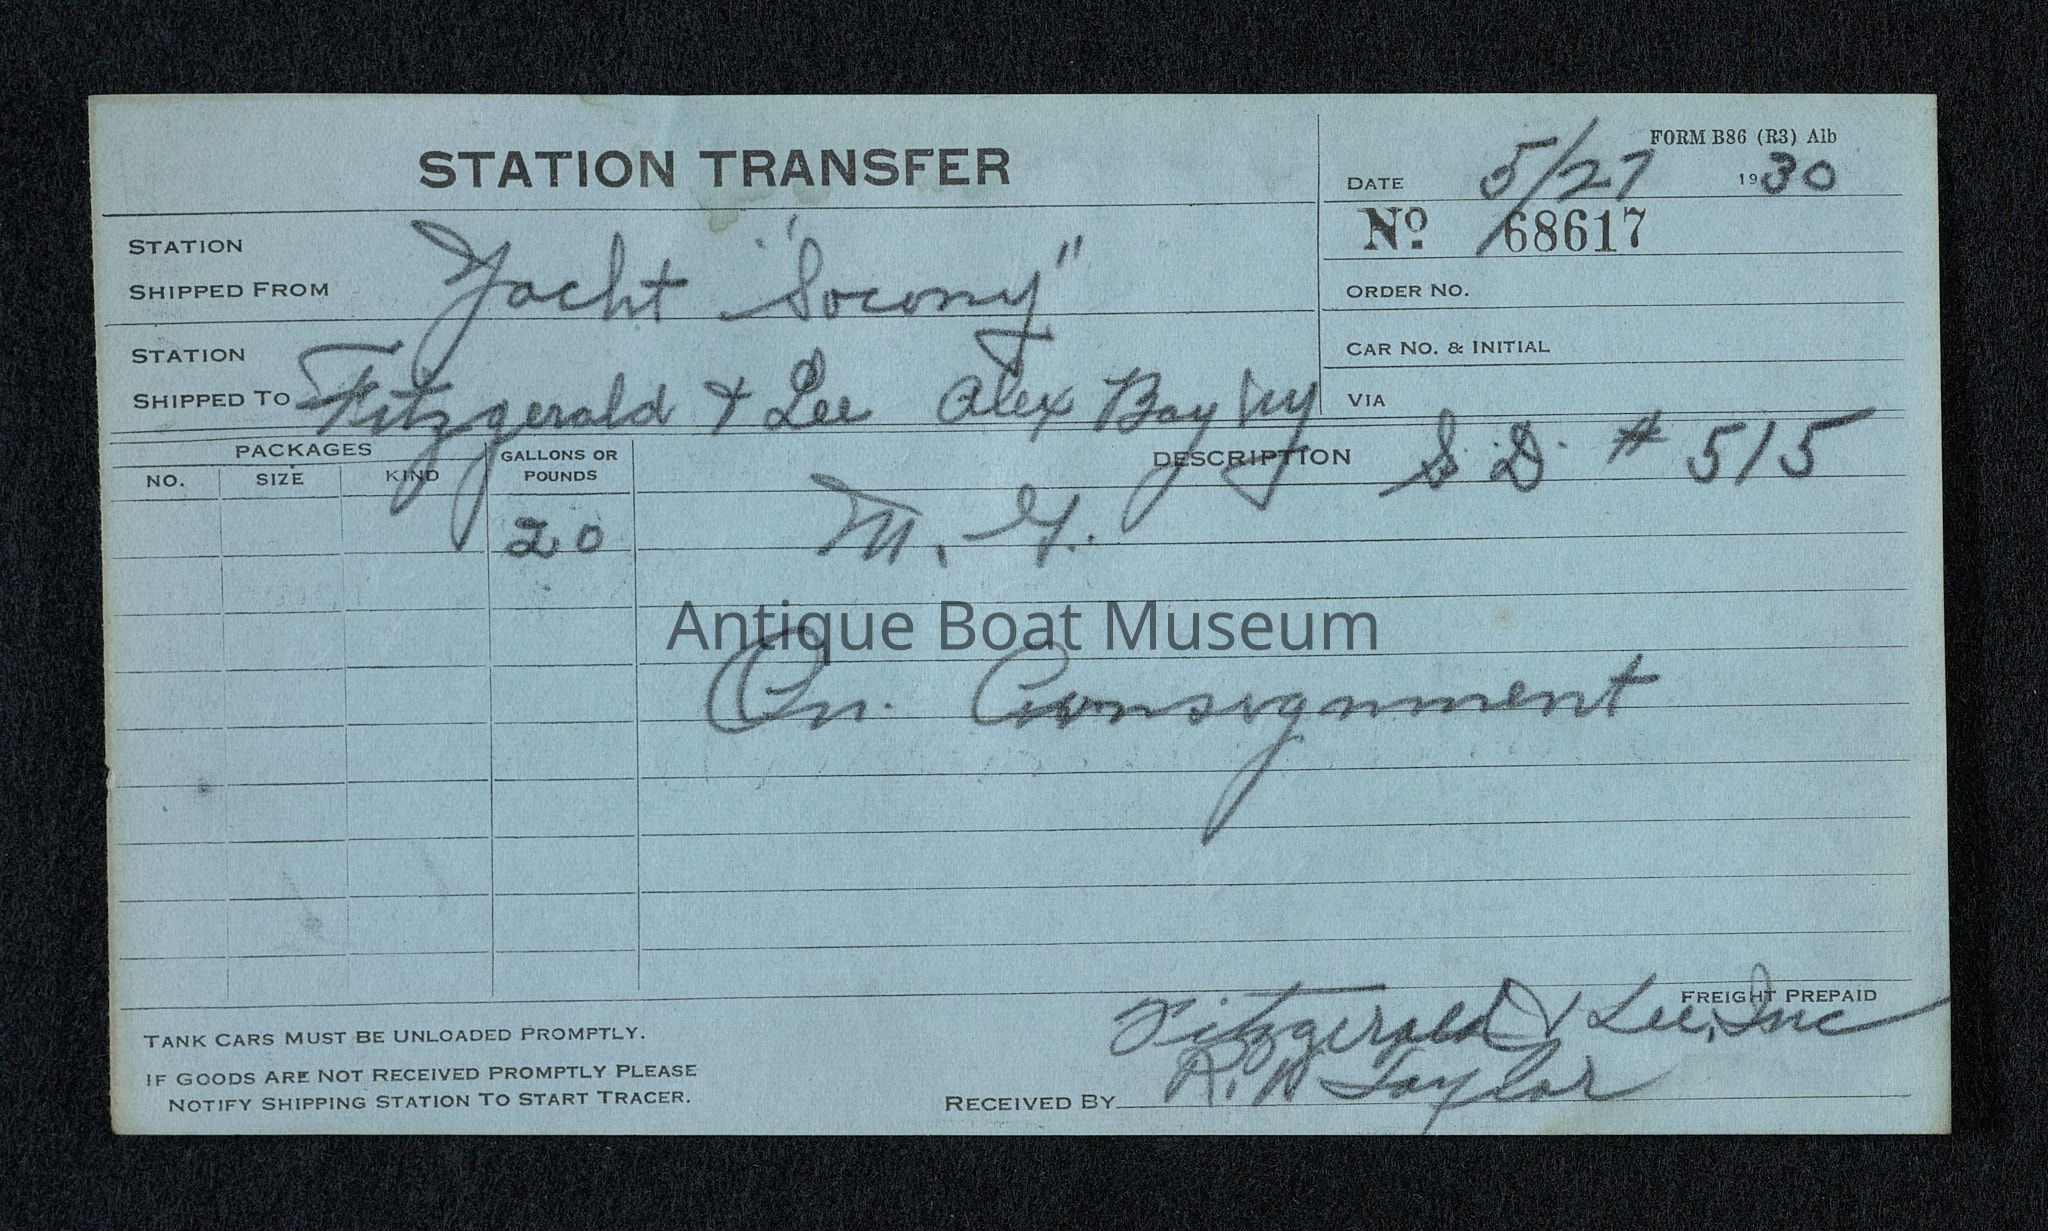 FORM B86 (R3) Alb
STATION TRANSFER
DATE 5/27 1930
No 68617
STATION
SHIPPED FROM Yacht "Socony"
ORDER NO.
CAR NO. & INITIAL
STATION
SHIPPED TO Fitzgerald & Lee Alex Bay NY
VIA
PACKAGES
NO. SIZE KIND
GALLONS OR
POUNDS
DESCRIPTION S.D. # 515
20 M. G.
Antique Boat Museum
On Consignment
FREIGHT PREPAID
TANK CARS MUST BE UNLOADED PROMPTLY.
IF GOODS ARE NOT RECEIVED PROMPTLY PLEASE
NOTIFY SHIPPING STATION TO START TRACER.
Fitzgerald & Lee, Inc
RECEIVED BY R. W Taylor